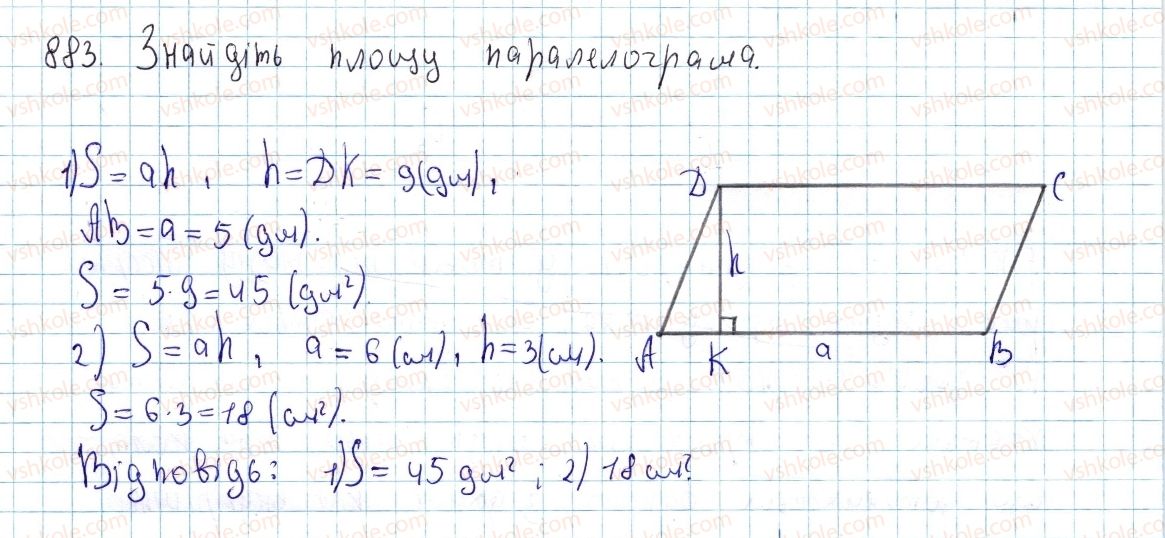 883. Знайдіть площу паралелограма.
1) S = ah, h = DK = 9 (дм),
AB = a = 5 (дм).
S = 5·9 = 45 (дм²).
2) S = ah, a = 6 (см), h = 3 (см).
S = 6·3 = 18 (см²).
Відповідь: 1) S = 45 дм²; 2) 18 см².
D C
h
A K a B
vshkole.com